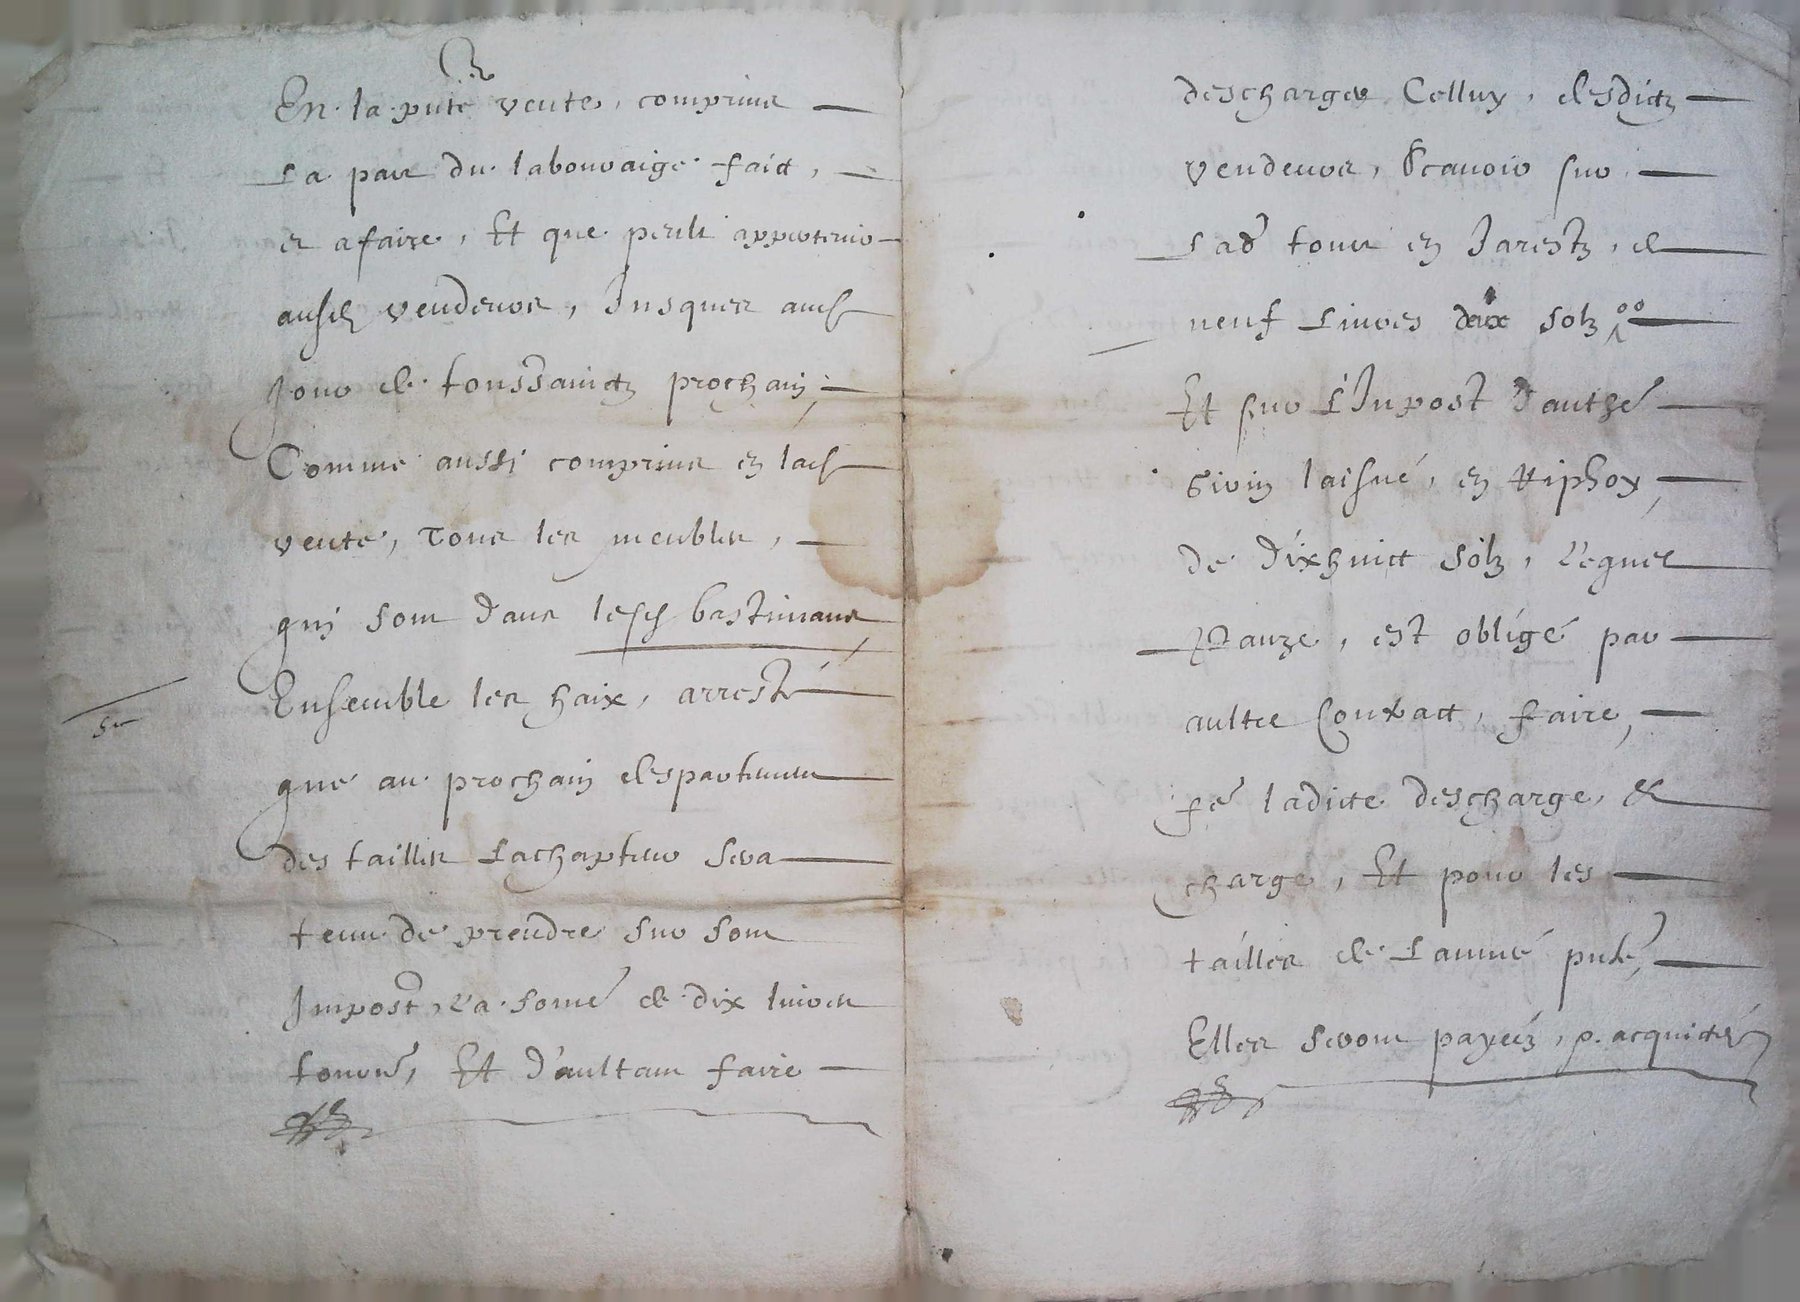 En la pnte vente, comprins
La part du labouraige faict,
et a faire, Et que peult appartenir
ausdz vendeurs, Jusques audt
Jour de toussainctz prochain,
Comme aussi comprins en lad
vente, Tous les meubles,
qui sont dans lesdz bastimans,
Ensemble les haix, arresté
que au prochain despartement
des tailles Lachapteur sera
tenu de prendre sur son
Impost, La some de dix livres
tournz, Et d'aultant faire
descharger Celluy, desdictz
vendeurs, Scavoir sur
Lad tour en Jarestz, de
neuf Livres deux solz
Et sur L'Impost d'
Givin laisné, en
de dixhuict solz, Lequel
est obligé par
aultre Contract, faire,
ladicte descharge, &
charge, Et pour les
tailles de Lannée pnte,
Elles seront payéez, acquictés